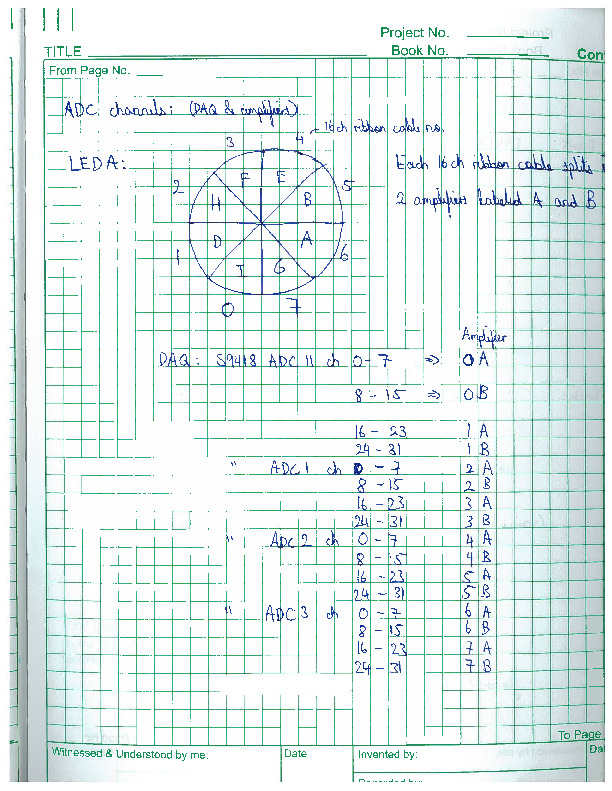 Project No.
TITLE
Book No.
From Page No.
ADC channels: (DAQ & amplifiers)
16ch ribbon cable no.
LEDA:
Each 16 ch ribbon cable splits
2 amplifiers labeled A and B
3 4
F E
2 H B 5
1 D A 6
I G
0 7
Amplifier
DAQ: S9418 ADC 11 ch 0-7 ⇒ 0 A
8-15 ⇒ 0 B
16-23 1 A
24-31 1 B
" ADC 1 ch 0-7 2 A
8-15 2 B
16-23 3 A
24-31 3 B
" ADC 2 ch 0-7 4 A
8-15 4 B
16-23 5 A
24-31 5 B
" ADC 3 ch 0-7 6 A
8-15 6 B
16-23 7 A
24-31 7 B
To Page
Witnessed & Understood by me.
Date
Invented by: